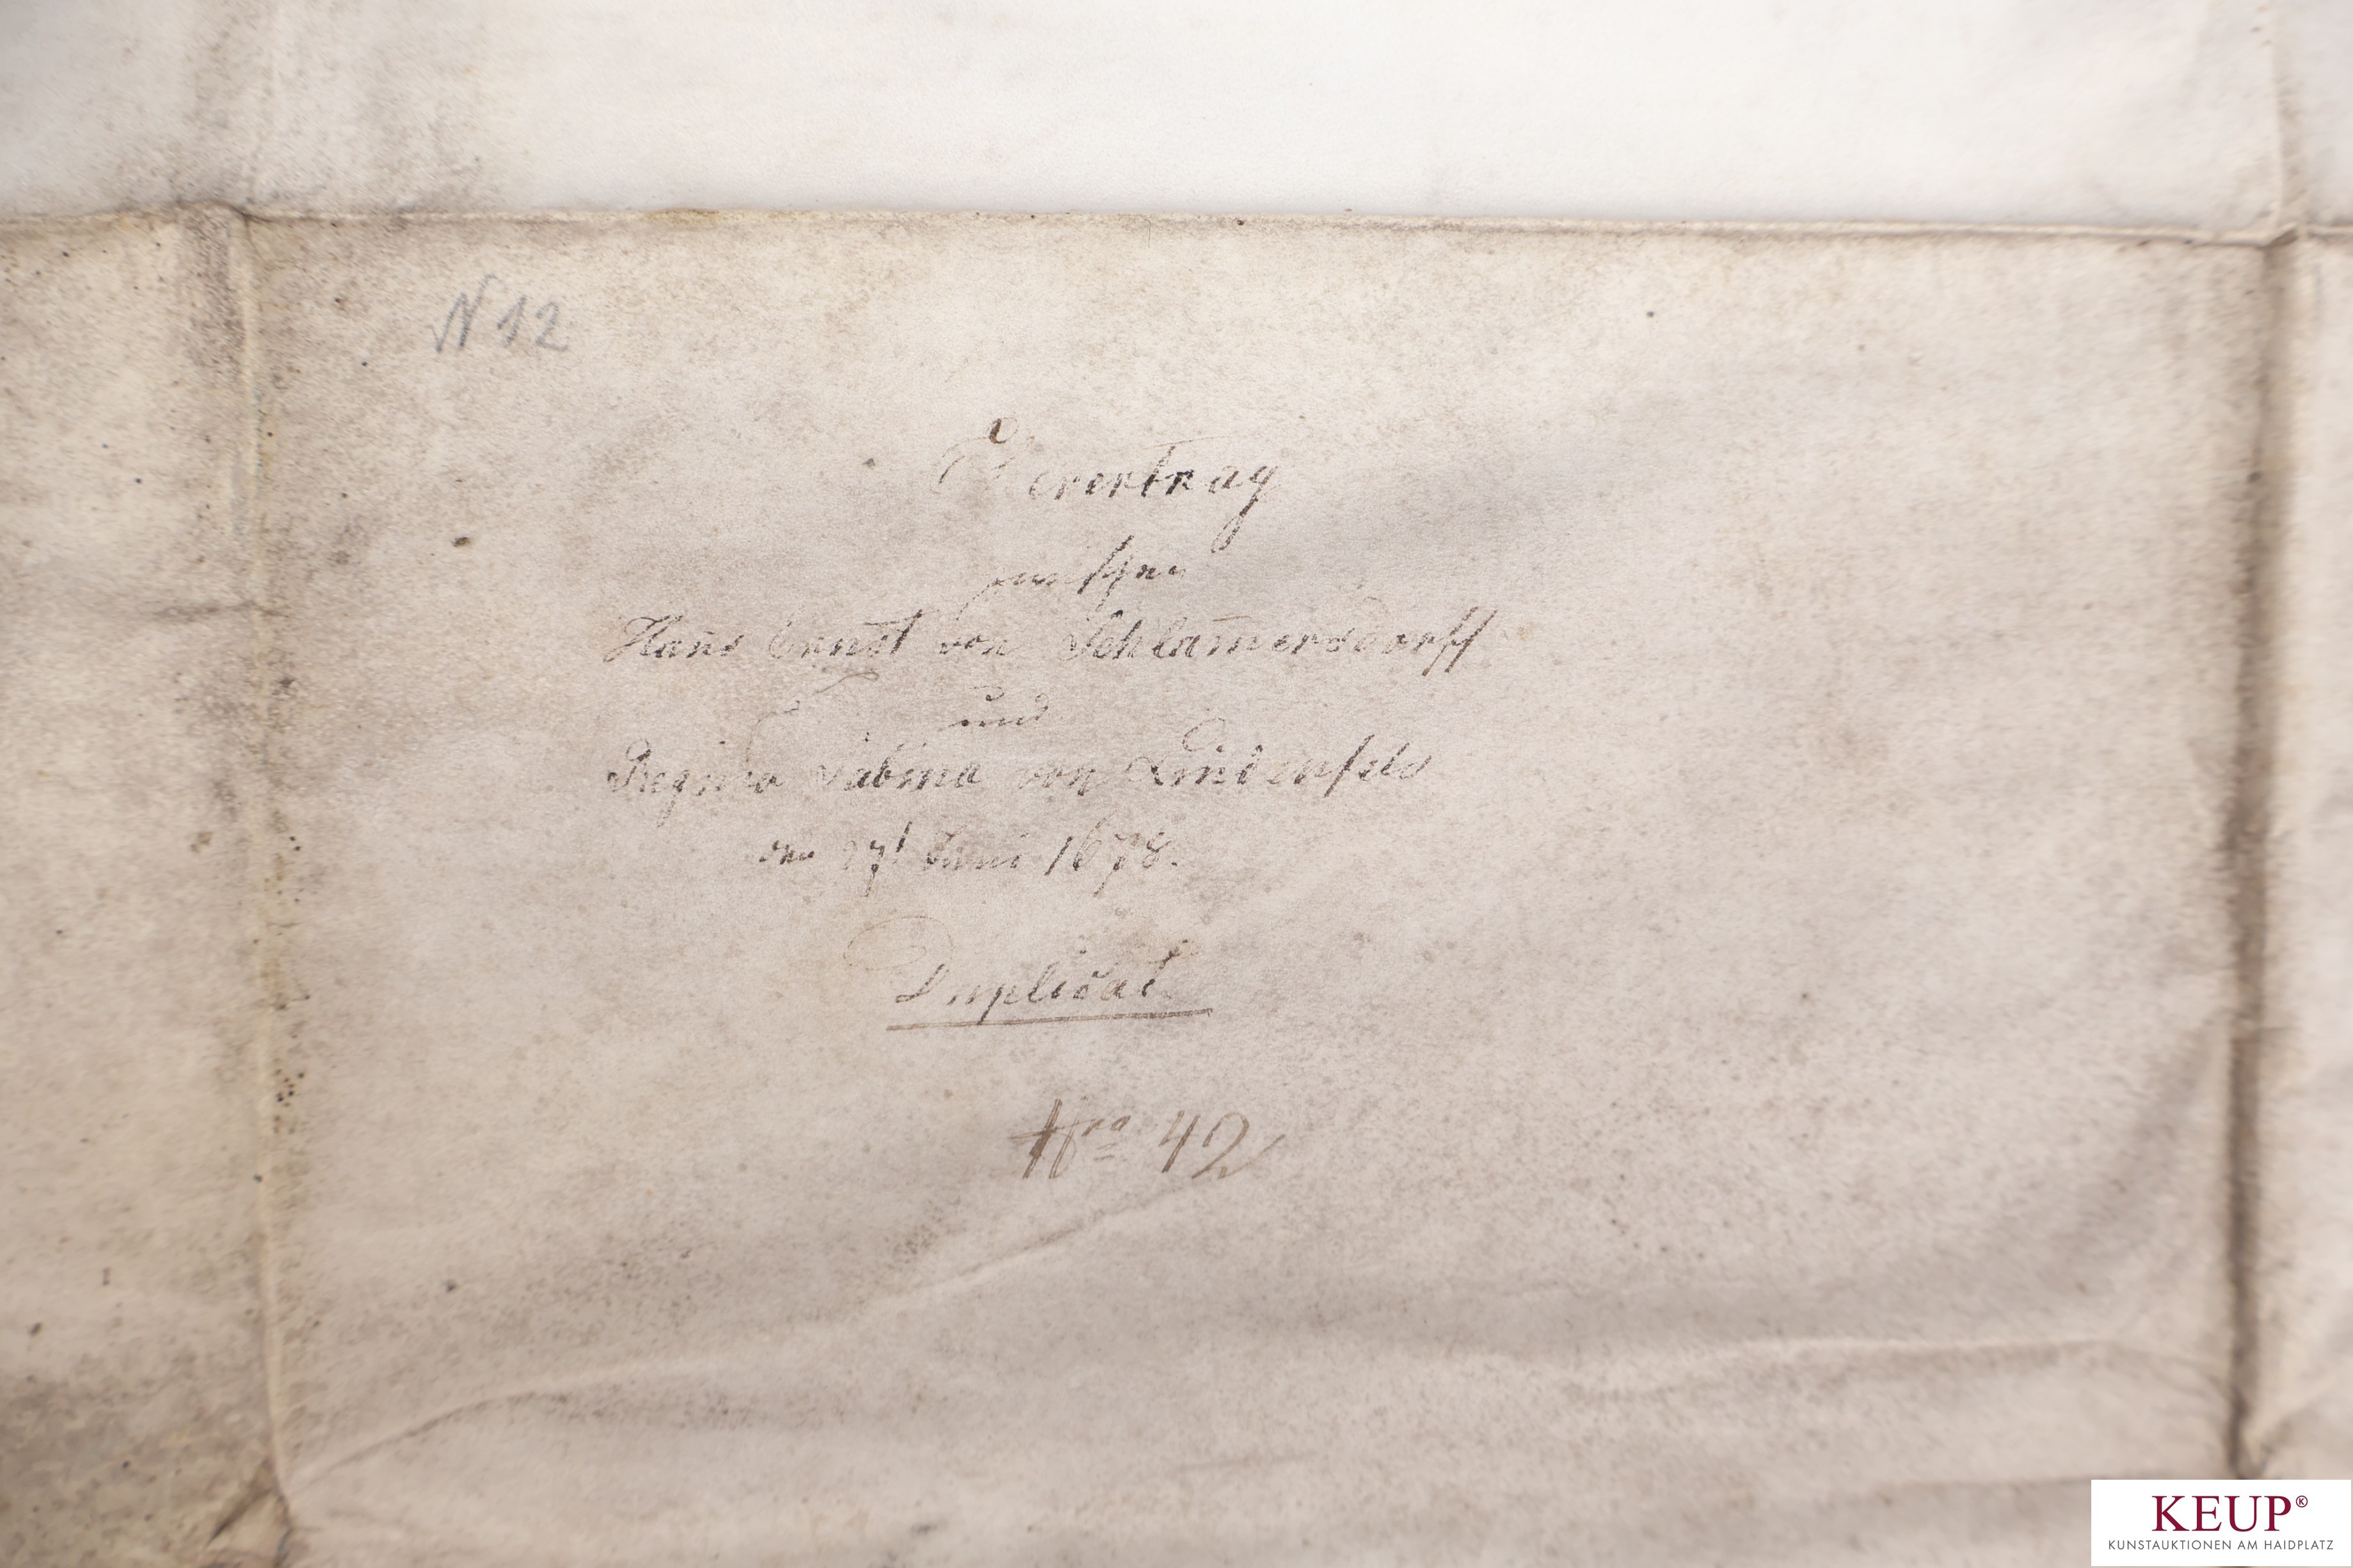 N 12
Ehevertrag
zwischen
Hans̄ Ernst von Schlam̄ersdorff
und
Regina Sabina von Lindenfels
den 27t Juni 1678.
Duplicat
Nro 42
KEUP®
KUNSTAUKTIONEN AM HAIDPLATZ